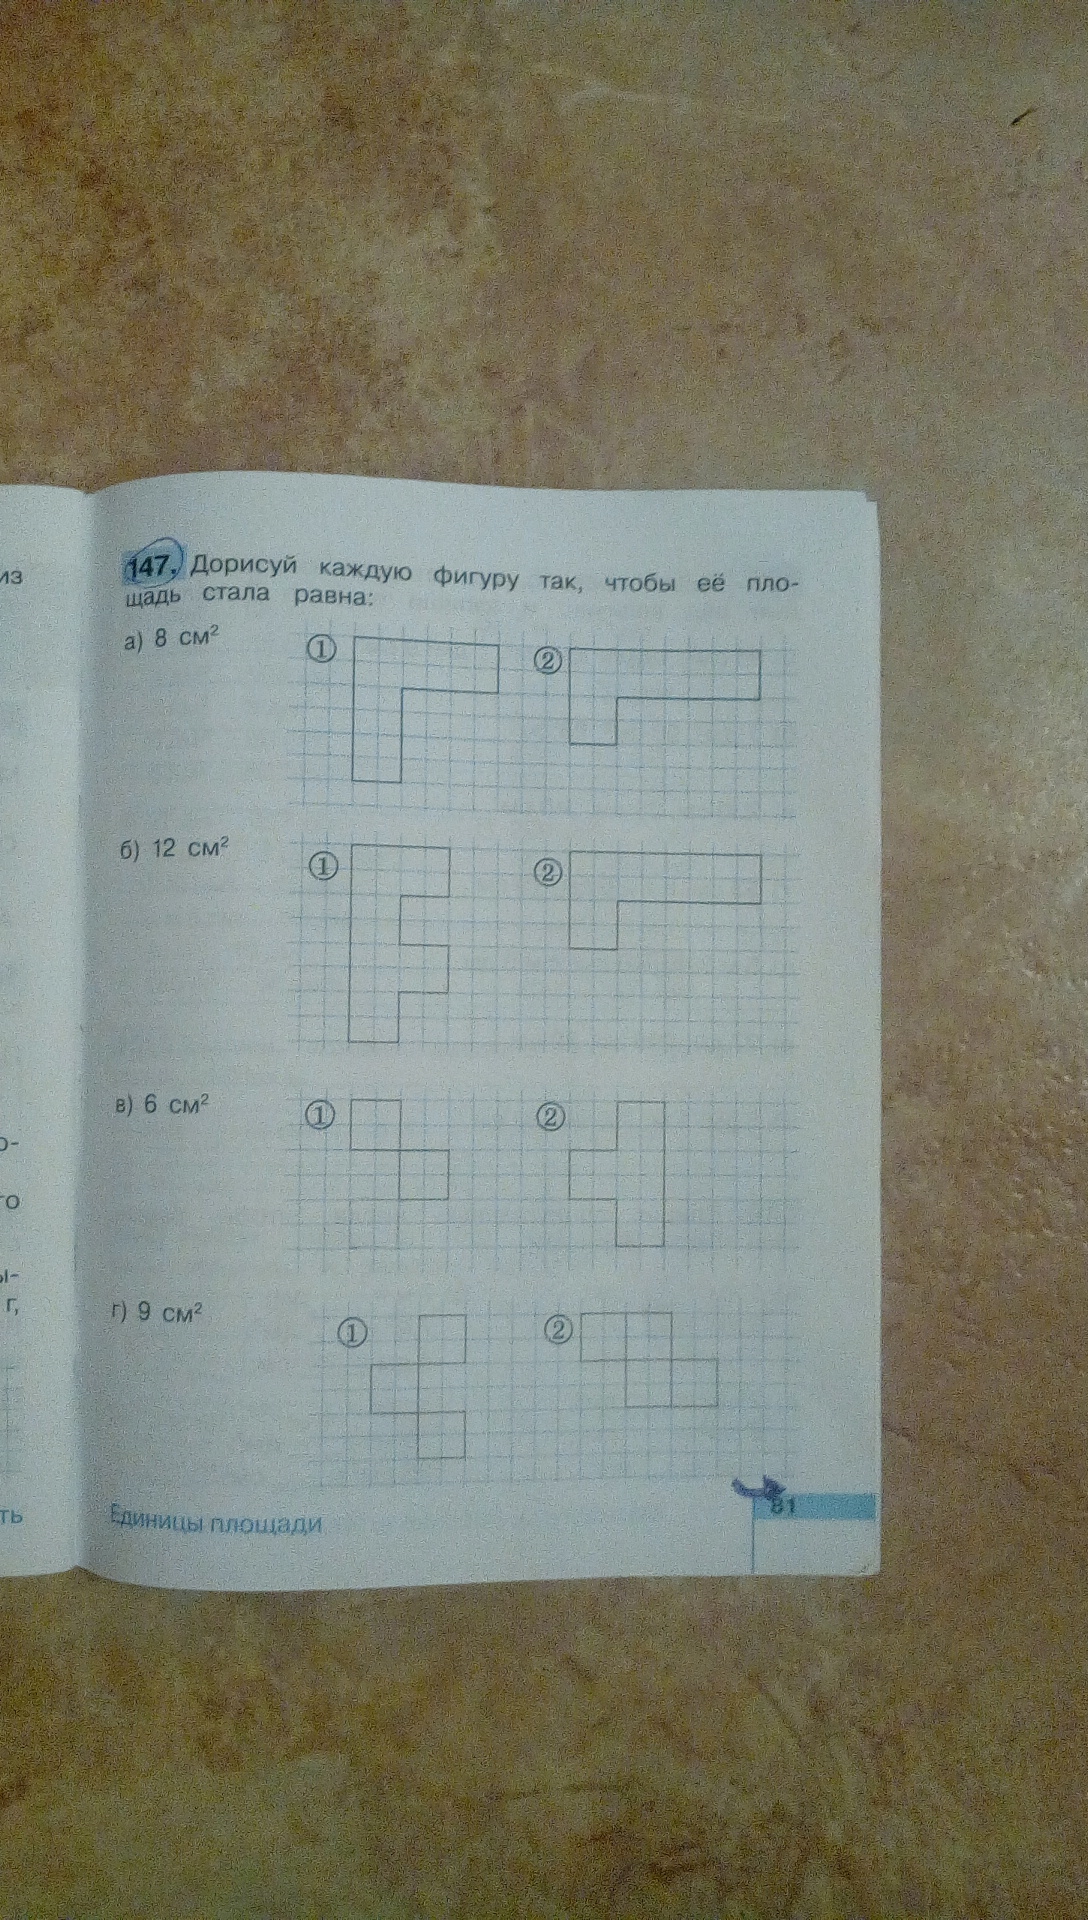 из
о-
го
ы-
г,
ть
147. Дорисуй каждую фигуру так, чтобы её пло-
щадь стала равна:
а) 8 см² ① ②
б) 12 см² ① ②
в) 6 см² ① ②
г) 9 см² ① ②
Единицы площади 81